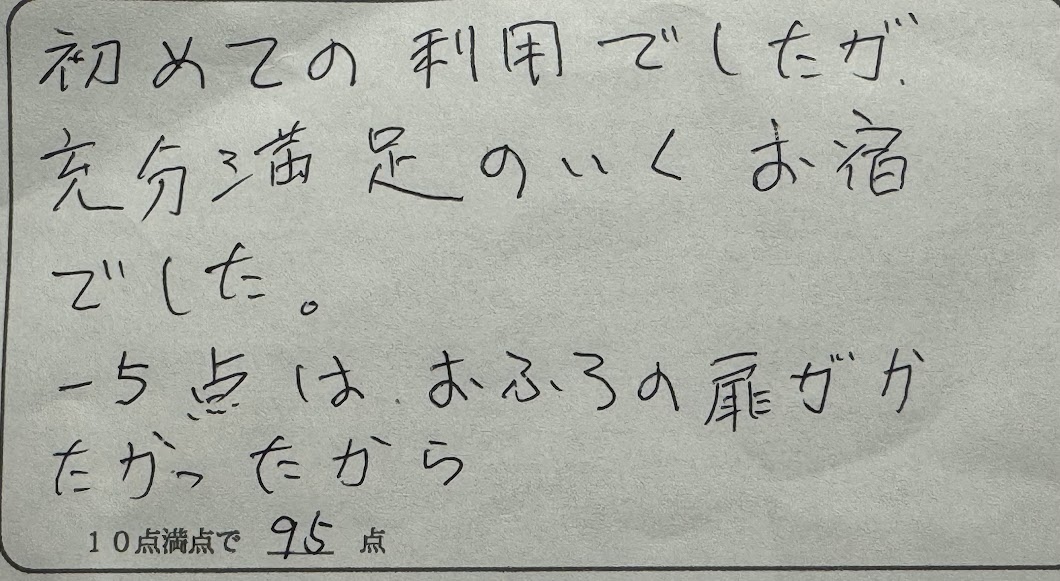 初めての利用でしたが、
充分満足のいくお宿
でした。
-5点は、おふろの扉がか
たかったから
10点満点で 95 点